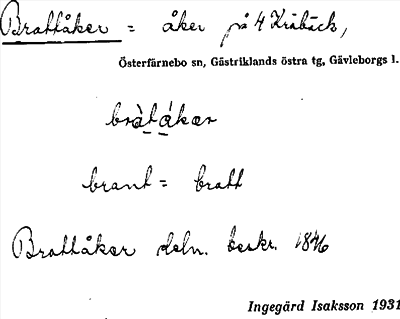 Brattåker = åker på 4 Kråbäck,
Österfärnebo sn, Gästriklands östra tg, Gävleborgs l.
bràtákær
brant = bratt
Brattåker deln. beskr. 1846
Ingegärd Isaksson 1931